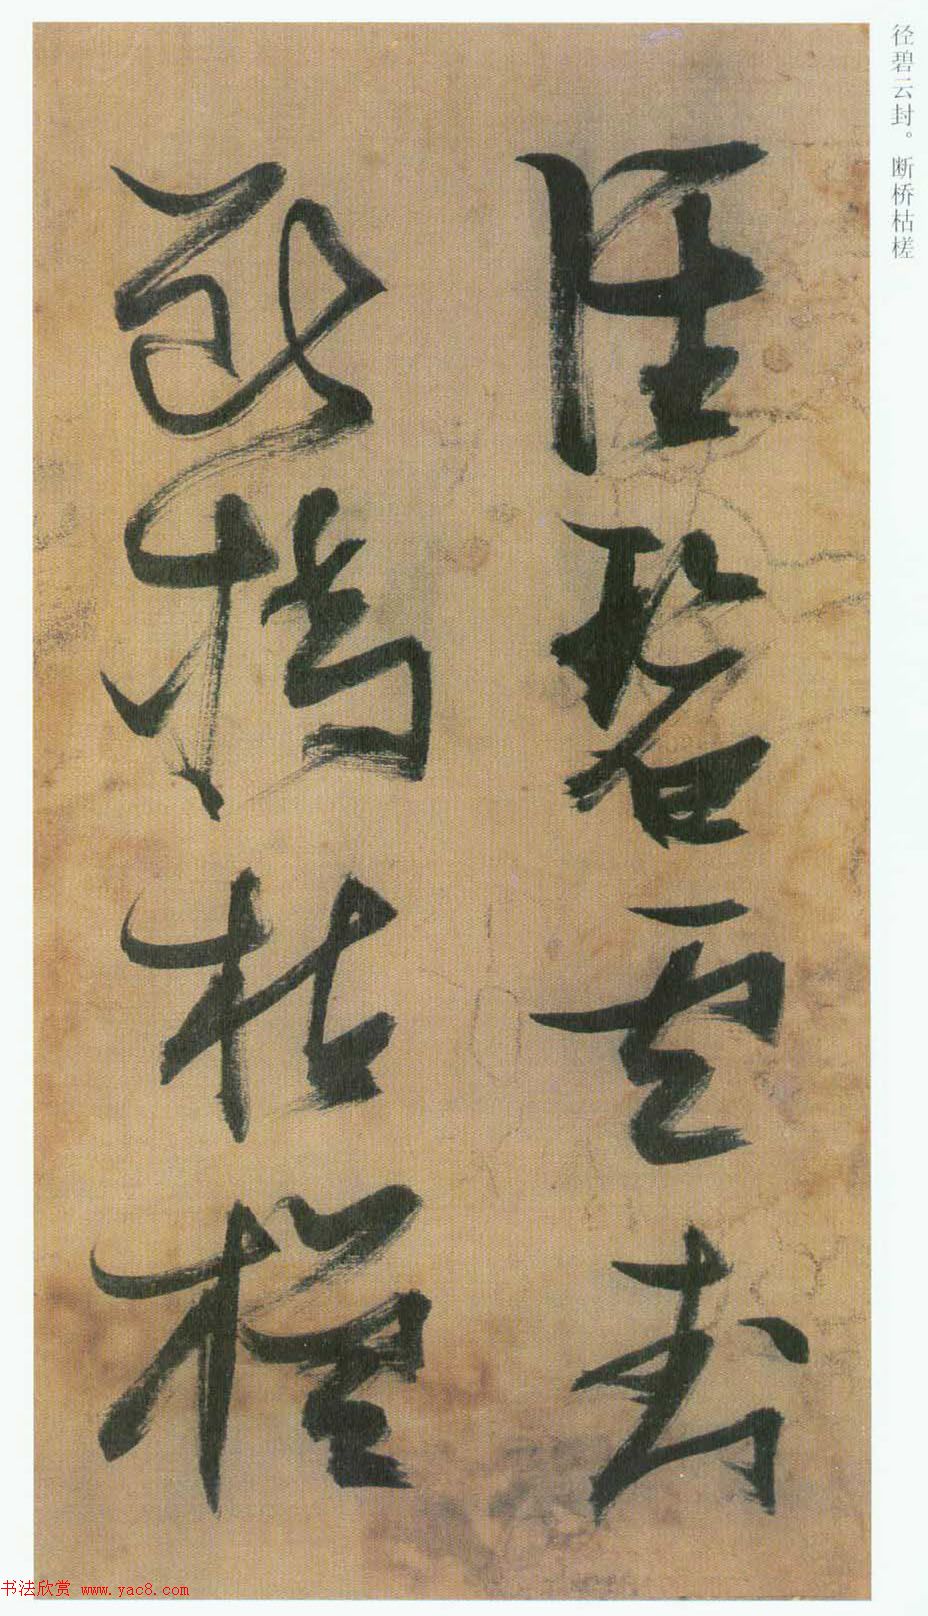 径碧云封。断桥枯槎
径碧云封
断桥枯槎
书法欣赏 www.yac8.com